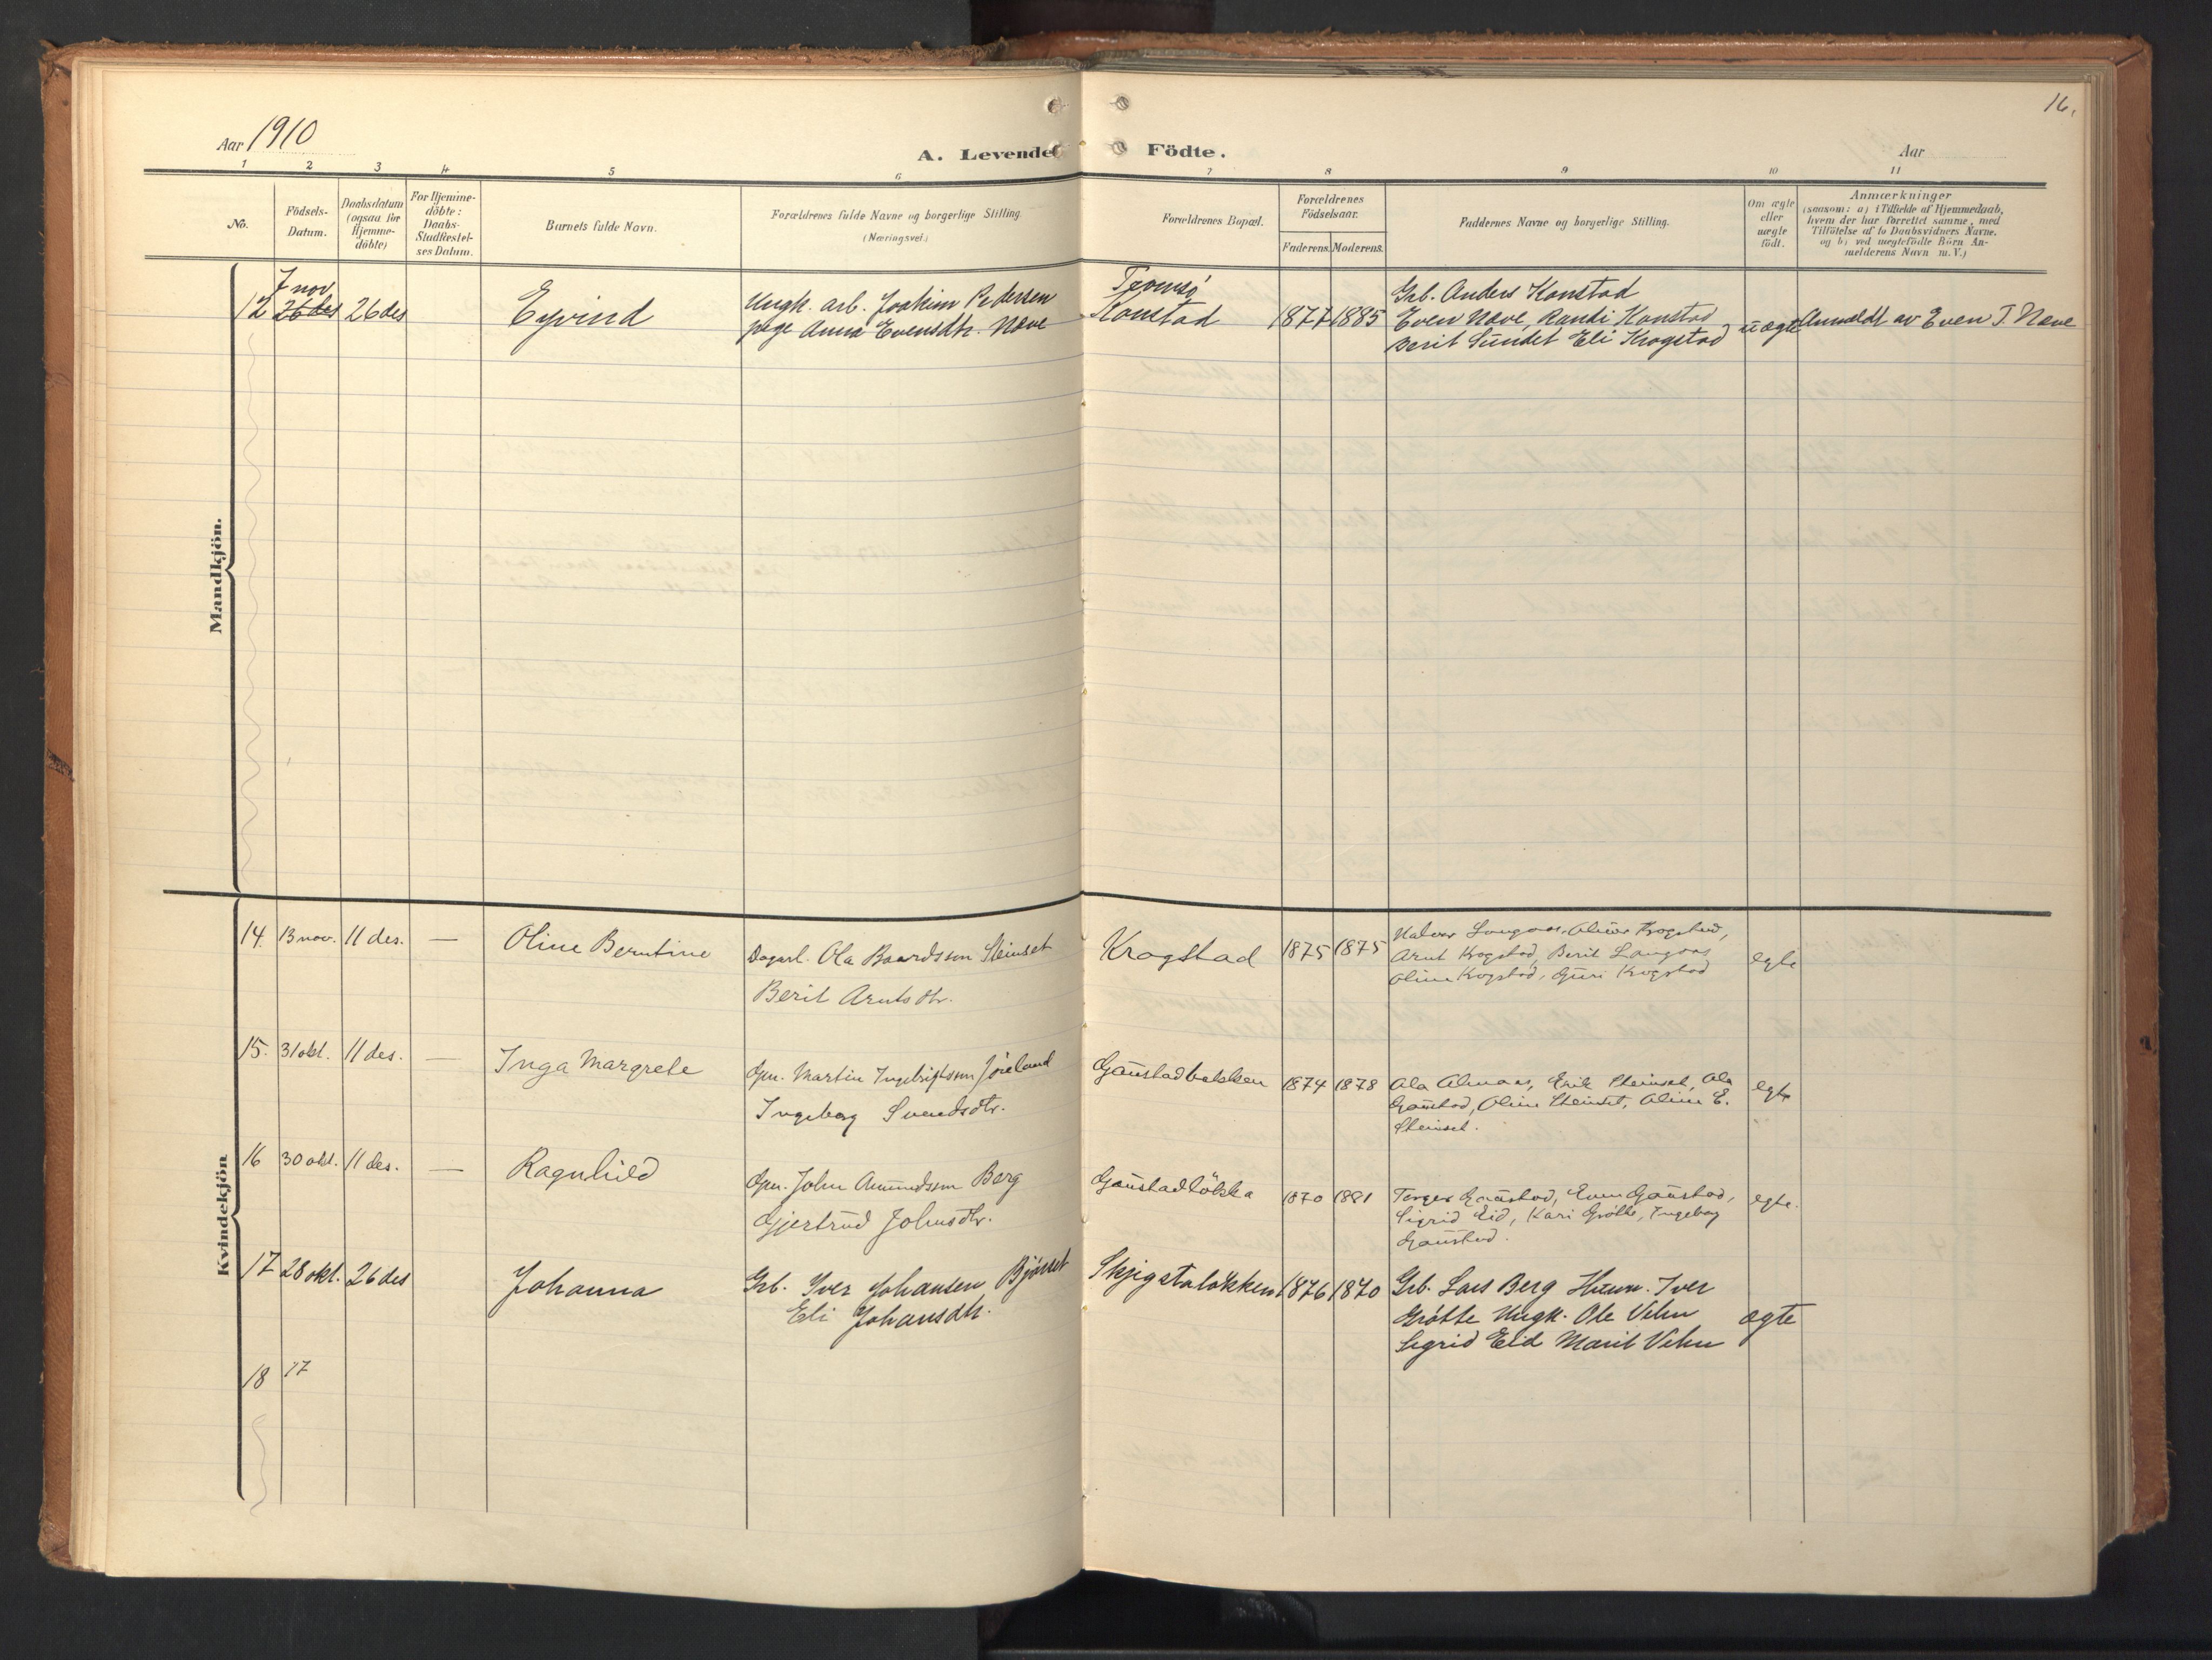 16.
Aar 1910
A. Levende Födte.
Aar
1 2 3 4 5 6 7 8 9 10 11
No.
Födsels-
Datum.
Daabsdatum
(ogsaa for
Hjemme-
döbte)
For Hjemme-
döbte:
Daabs-
Stadfæstel-
ses Datum.
Barnets fulde Navn.
Forældrenes fulde Navne og borgerlige Stilling.
(Næringsvei.)
Forældrenes Bopæl.
Forældrenes
Födselsaar.
Faderens. Moderens.
Faddernes Navne og borgerlige Stilling.
Om ægte
eller
uægte
födt.
Anmærkninger
(saasom: a) i Tilfælde af Hjemmedaab,
hvem der har forrettet samme, med
Tilföielse af to Daabsvidners Navne.
og b) ved uægtefödte Börn An-
melderens Navn m. V.)
Mandkjön.
12
7 nov
26 des
26 des
Eyvind
Ungk. arb. Joakim Pedersen
pige Anna Evensdtr. Næve
Tromsö
Konstad
1877 1885
Grb. Anders Konstad
Even Næve, Randi Konstad
Berit Sundet Eli Krogstad
uægte
Anmeldt av Even T. Næve
Kvindekjön
14. 13 nov. 11 des. —
Oline Berntine
Dagarb. Ola Baardssøn Steinset
Berit Arntsdtr.
Krogstad
1875 1875
Halvor Langaas, Krogstad,
Arnt Krogstad, Berit Langaas,
Oline Krogstad, Guri Krogstad
egte
15. 31 okt. 11 des. —
Inga Margrete
Gm. Martin Ingebrigtssøn
Ingeborg Svendsdtr.
Gaustadbakken
1874 1878
Ola Almaas, Erik Steinset, Ola
Gaustad, Oline Steinset, Oline E.
Steinset.
egte
16 30 okt. 11 des. —
Ragnhild
Gm. John Amundssøn Berg
Gjertrud Johnsdtr.
Gaustadlökka
1870 1881
Torger Gaustad, Even Gaustad,
Sigrid Eid, Kari Grøtte, Ingeborg
Gaustad.
egte.
17 28 okt. 26 des
Johanna
Grb. Iver Johansen Bjørset
Eli Johansdtr.
Skjigstaløkken
1876 1870
Grb. Lars Berg Husm. Iver
Grøtte Ungk. Ole Vehn
Sigrid Eid Marit Vehn
ægte
18 17